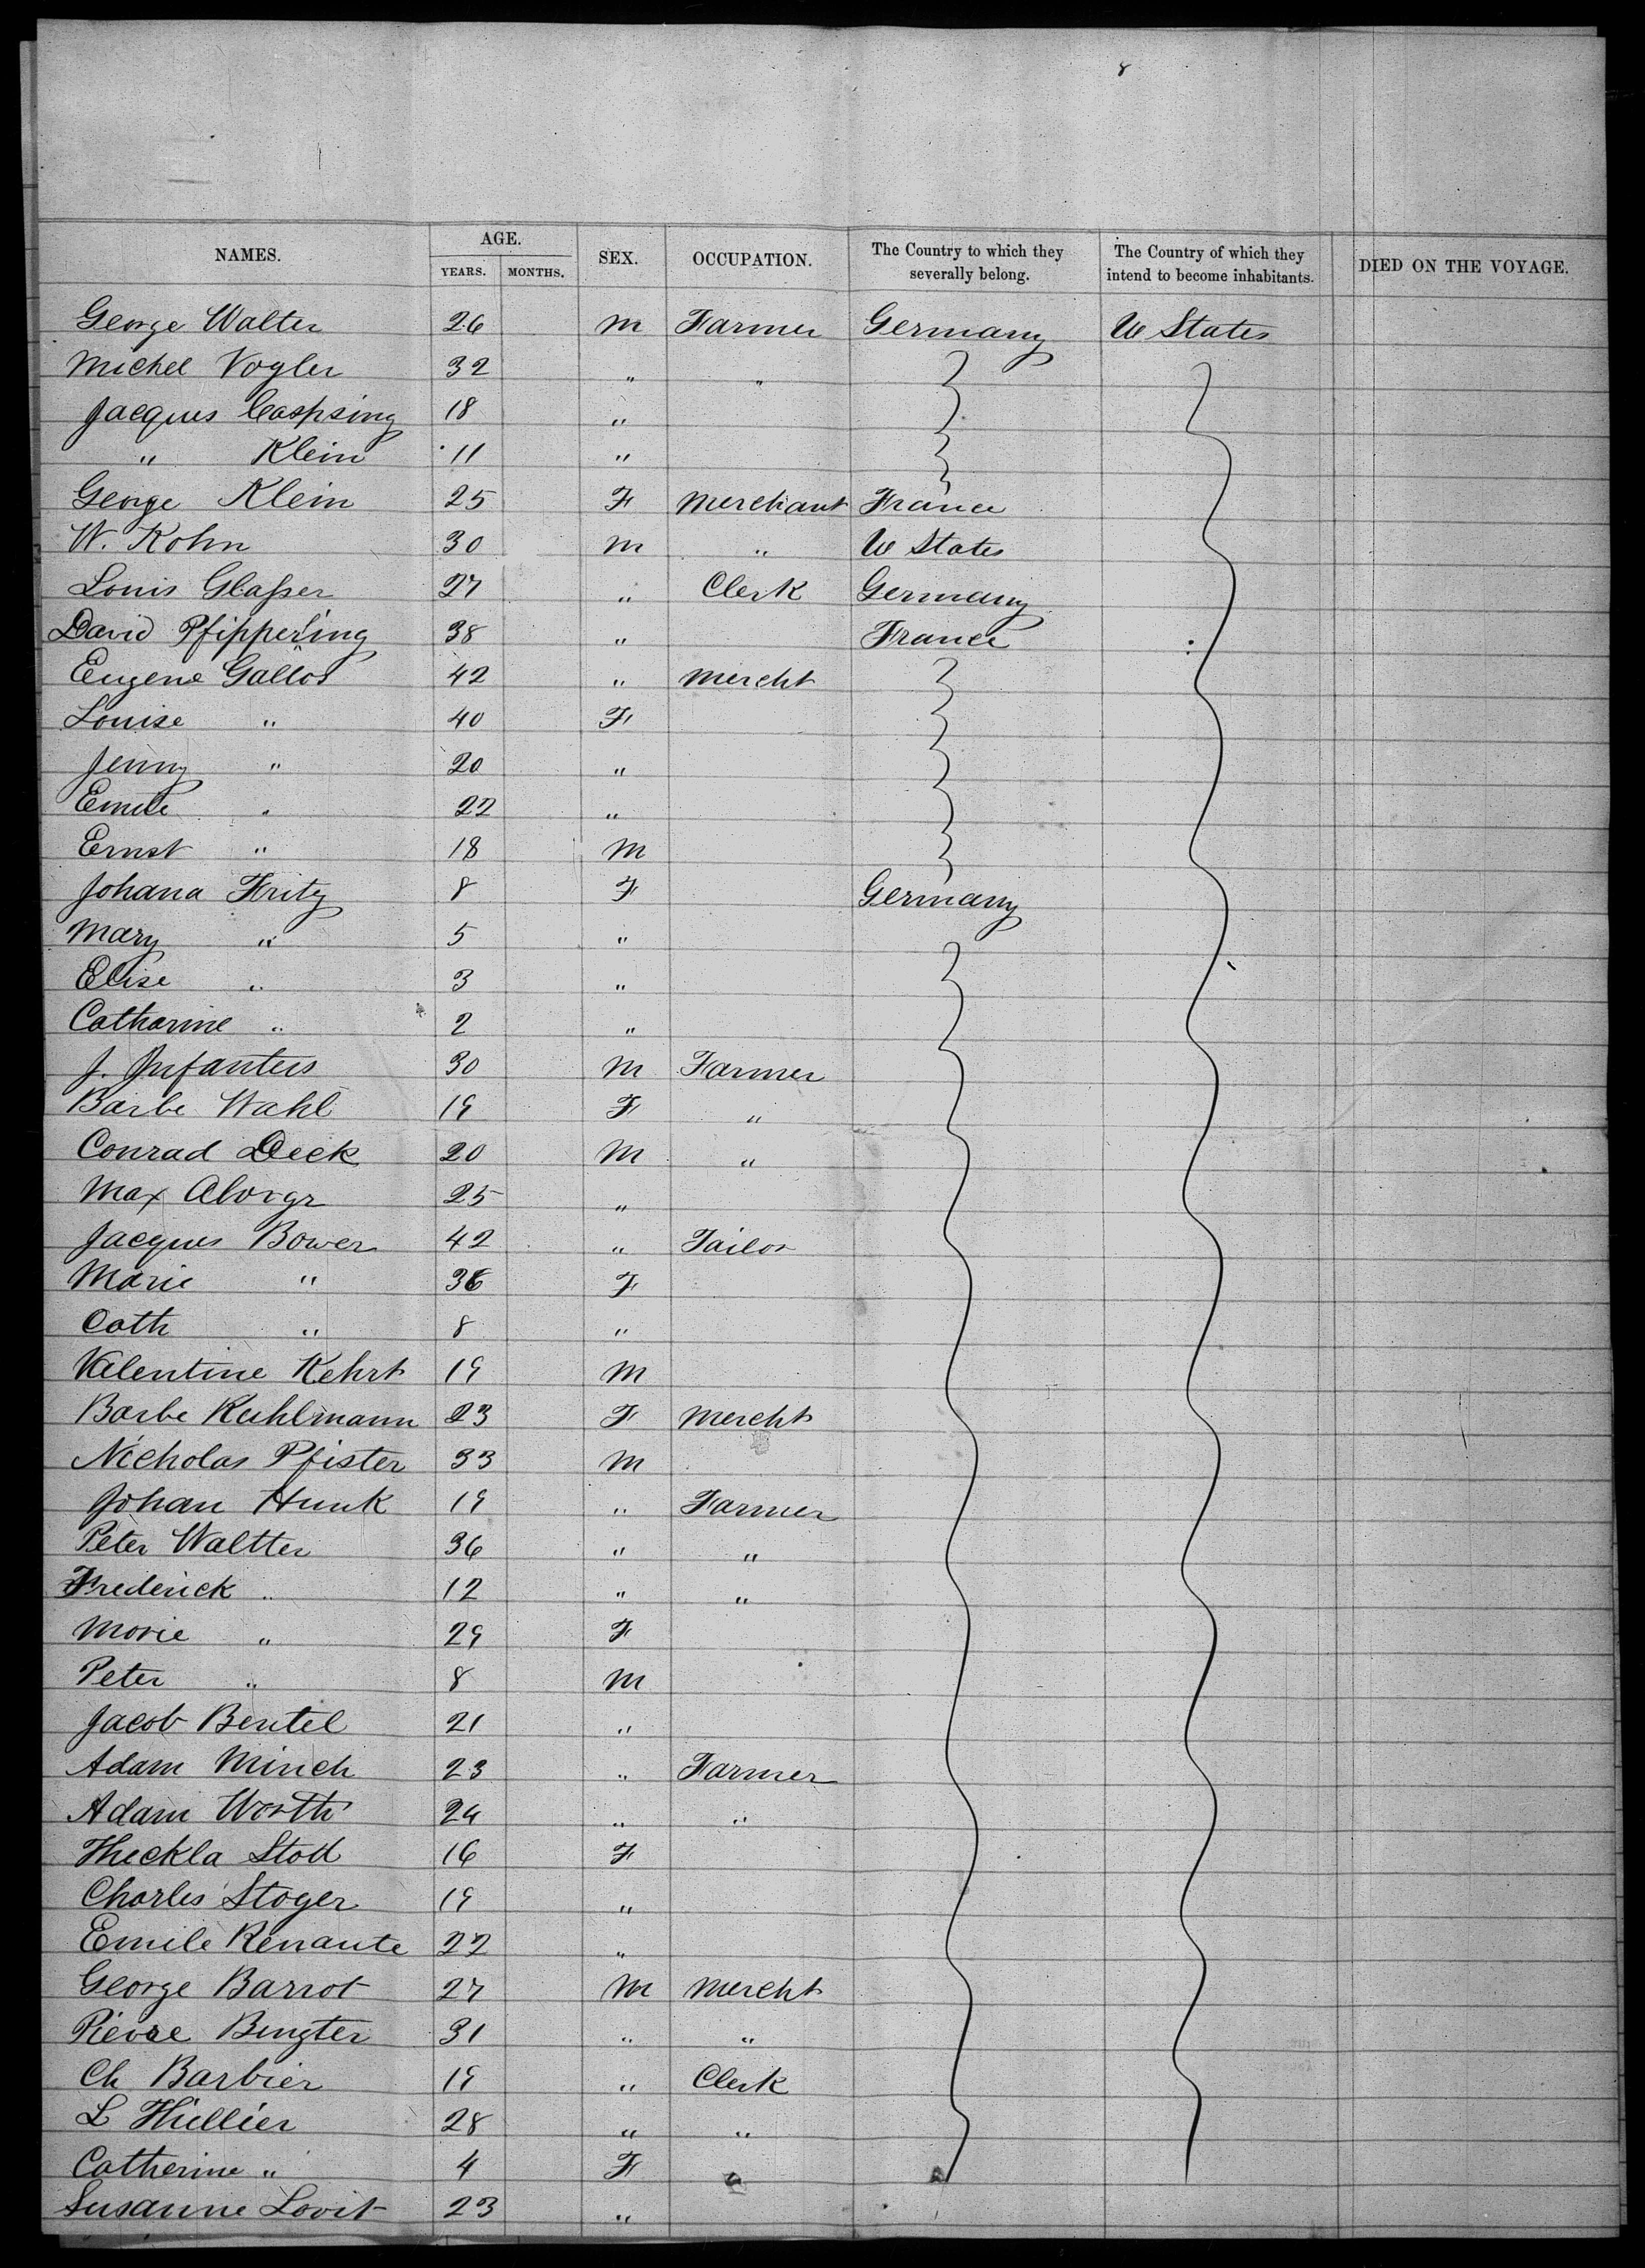 8
NAMES. AGE. YEARS. MONTHS. SEX. OCCUPATION. The Country to which they severally belong. The Country of which they intend to become inhabitants. DIED ON THE VOYAGE.
George Walter 26 M Farmer Germany U States
Michel Vogler 32 " "
Jacques Caspsing 18 "
" Klein 11 "
George Klein 25 F Merchant France
W. Kohn 30 M " U States
Louis Glasser 27 " Clerk Germany
David Pfipperling 38 " France
Eugene Gallot 42 " Mercht
Louise " 40 F
Jenny " 20 "
Emile " 22 "
Ernst " 18 M
Johana Fritz 8 F Germany
Mary " 5 "
Elise " 3 "
Catharine " 2 "
J. Infanteis 30 M Farmer
Barbe Wahl 19 F "
Conrad Deck 20 M "
Max 25 "
Jacques Bower 42 " Tailor
Marie " 36 F
Cath " 8 "
Valentine Kehrt 19 M
Barbe Kuhlmann 23 F Mercht
Nicholas Pfister 33 M
Johan Hunk 19 " Farmer
Peter Waltter 36 " "
Frederick " 12 " "
Marie " 29 F
Peter " 8 M
Jacob Bentel 21 "
Adam Minch 23 " Farmer
Adam Worth 24 " "
Theckla Stoll 16 F
Charles Stoger 19 "
Emile Renaute 22 "
George Barrot 27 M Mercht
Pierre Bingter 31 " "
Ch Barbier 19 " Clerk
L Hillier 28 " "
Catherine " 4 F
Susanne Lovit 23 "